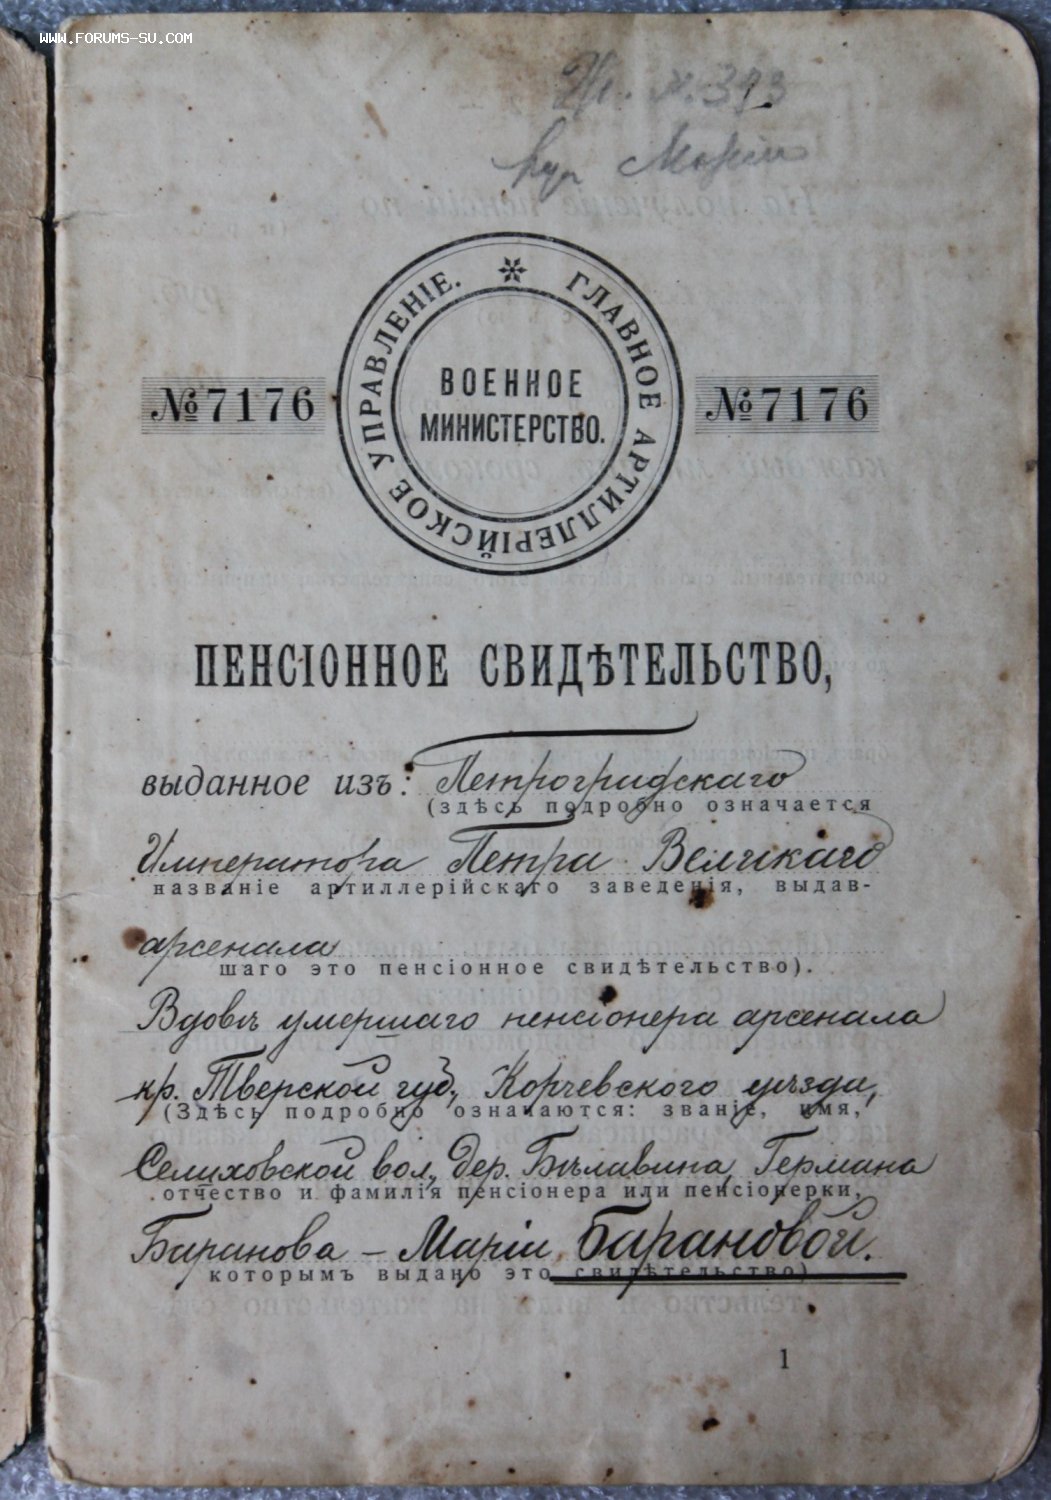 WWW.FORUMS-SU.COM
ГЛАВНОЕ АРТИЛЛЕРІЙСКОЕ УПРАВЛЕНІЕ.
ВОЕННОЕ
МИНИСТЕРСТВО.
№7176 №7176
ПЕНСІОННОЕ СВИДѢТЕЛЬСТВО,
выданное изъ: Петроградскаго
(здѣсь подробно означается
Императора Петра Великаго
названіе артиллерійскаго заведенія, выдав-
арсенала
шаго это пенсіонное свидѣтельство).
Вдовѣ умершаго пенсіонера арсенала
кр. Тверской губ., Корчевского уѣзда,
(Здѣсь подробно означаются: званіе, имя,
Селиховской вол., дер. Бѣлавина, Германа
отчество и фамилія пенсіонера или пенсіонерки,
Баранова – Маріи Барановой.
которымъ выдано это свидѣтельство)
1